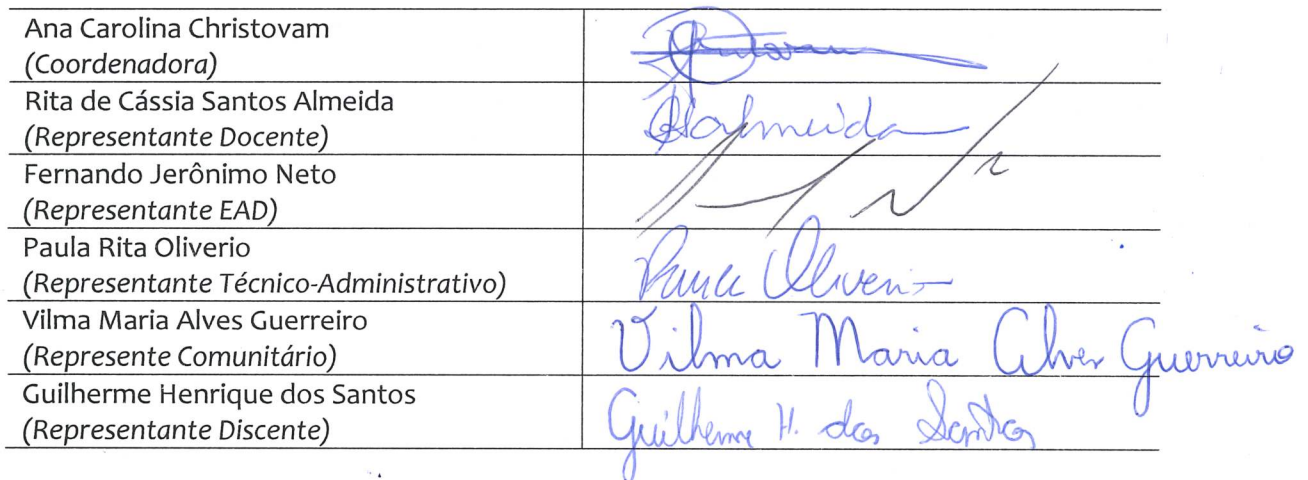 Ana Carolina Christovam
(Coordenadora)
Rita de Cássia Santos Almeida
(Representante Docente)
Almeida
Fernando Jerônimo Neto
(Representante EAD)
Paula Rita Oliverio
(Representante Técnico-Administrativo)
Paula Oliverio
Vilma Maria Alves Guerreiro
(Represente Comunitário)
Vilma Maria Alves Guerreiro
Guilherme Henrique dos Santos
(Representante Discente)
Guilherme H. dos Santos